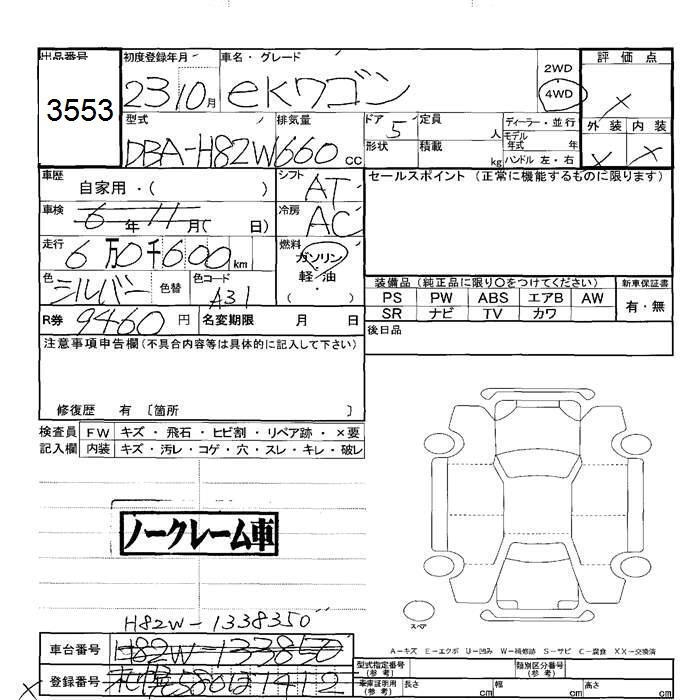 出品番号 初度登録年月 車名・グレード 2WD 評価点
3553 23 10月 eKワゴン 4WD ×
型式 排気量 ドア 5 定員 人 ディーラー・並行 外装 内装
DBA-H82W 660cc 形状 積載 kg モデル年式 年 × ×
ハンドル 左・右
車歴 自家用・( ) シフト AT セールスポイント(正常に機能するものに限ります)
車検 6年11月( 日) 冷房 AC
走行 6万0千600km 燃料 ガソリン
色 シルバー 色替 色コード A31 軽油 ( )
装備品(純正品に限り〇をつけてください) 新車保証書
PS PW ABS エアB AW 有・無
SR ナビ TV カワ
R券 9460円 名変期限 月 日 後日品
注意事項申告欄(不具合内容等は具体的に記入して下さい)
修復歴 有 〔箇所 〕
検査員 FW キズ・飛石・ヒビ割・リペア跡・×要
記入欄 内装 キズ・汚レ・コゲ・穴・スレ・キレ・破レ
ノークレーム車
スペア
H82W-1338350
車台番号 H82W-133850
A-キズ E-エクボ U-凹み W-補修跡 S-サビ C-腐食 XX-交換済
型式指定番号(参考) 類別区分番号(参考)
× 登録番号 札幌580ほ1412
車庫証明用(参考) 長さ cm 幅 cm 高さ cm